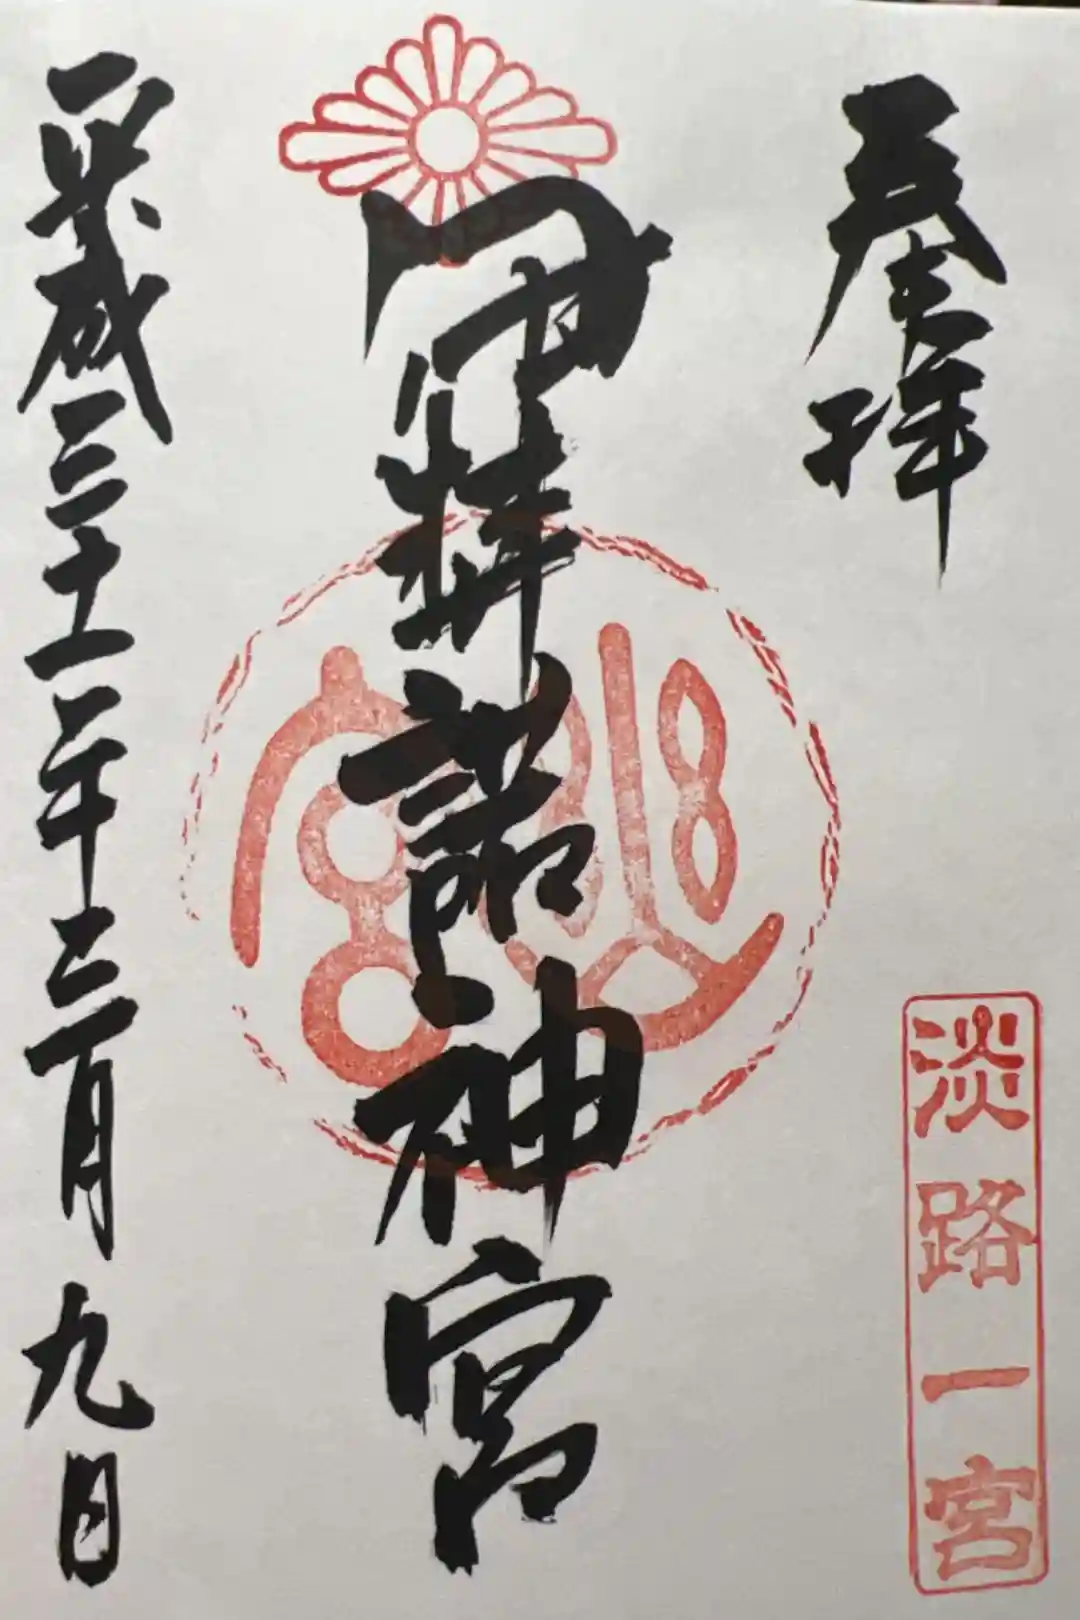 奉拝
淡路一宮
伊弉諾神宮
幽宮
平成三十一年二月九日